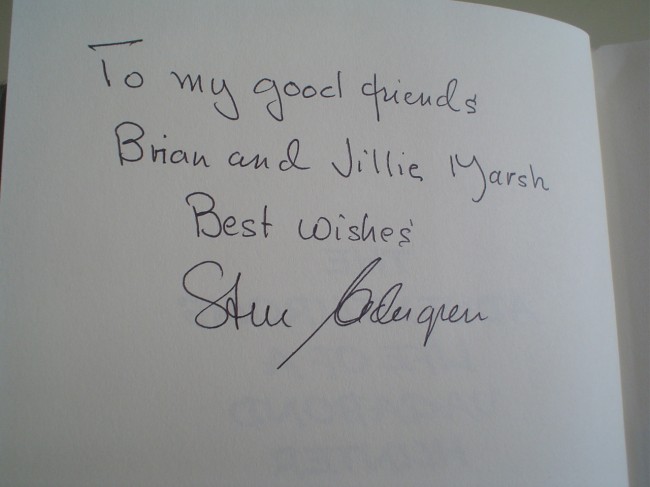 To my good friends
Brian and Jillie Marsh
Best wishes
Sten Cedergren